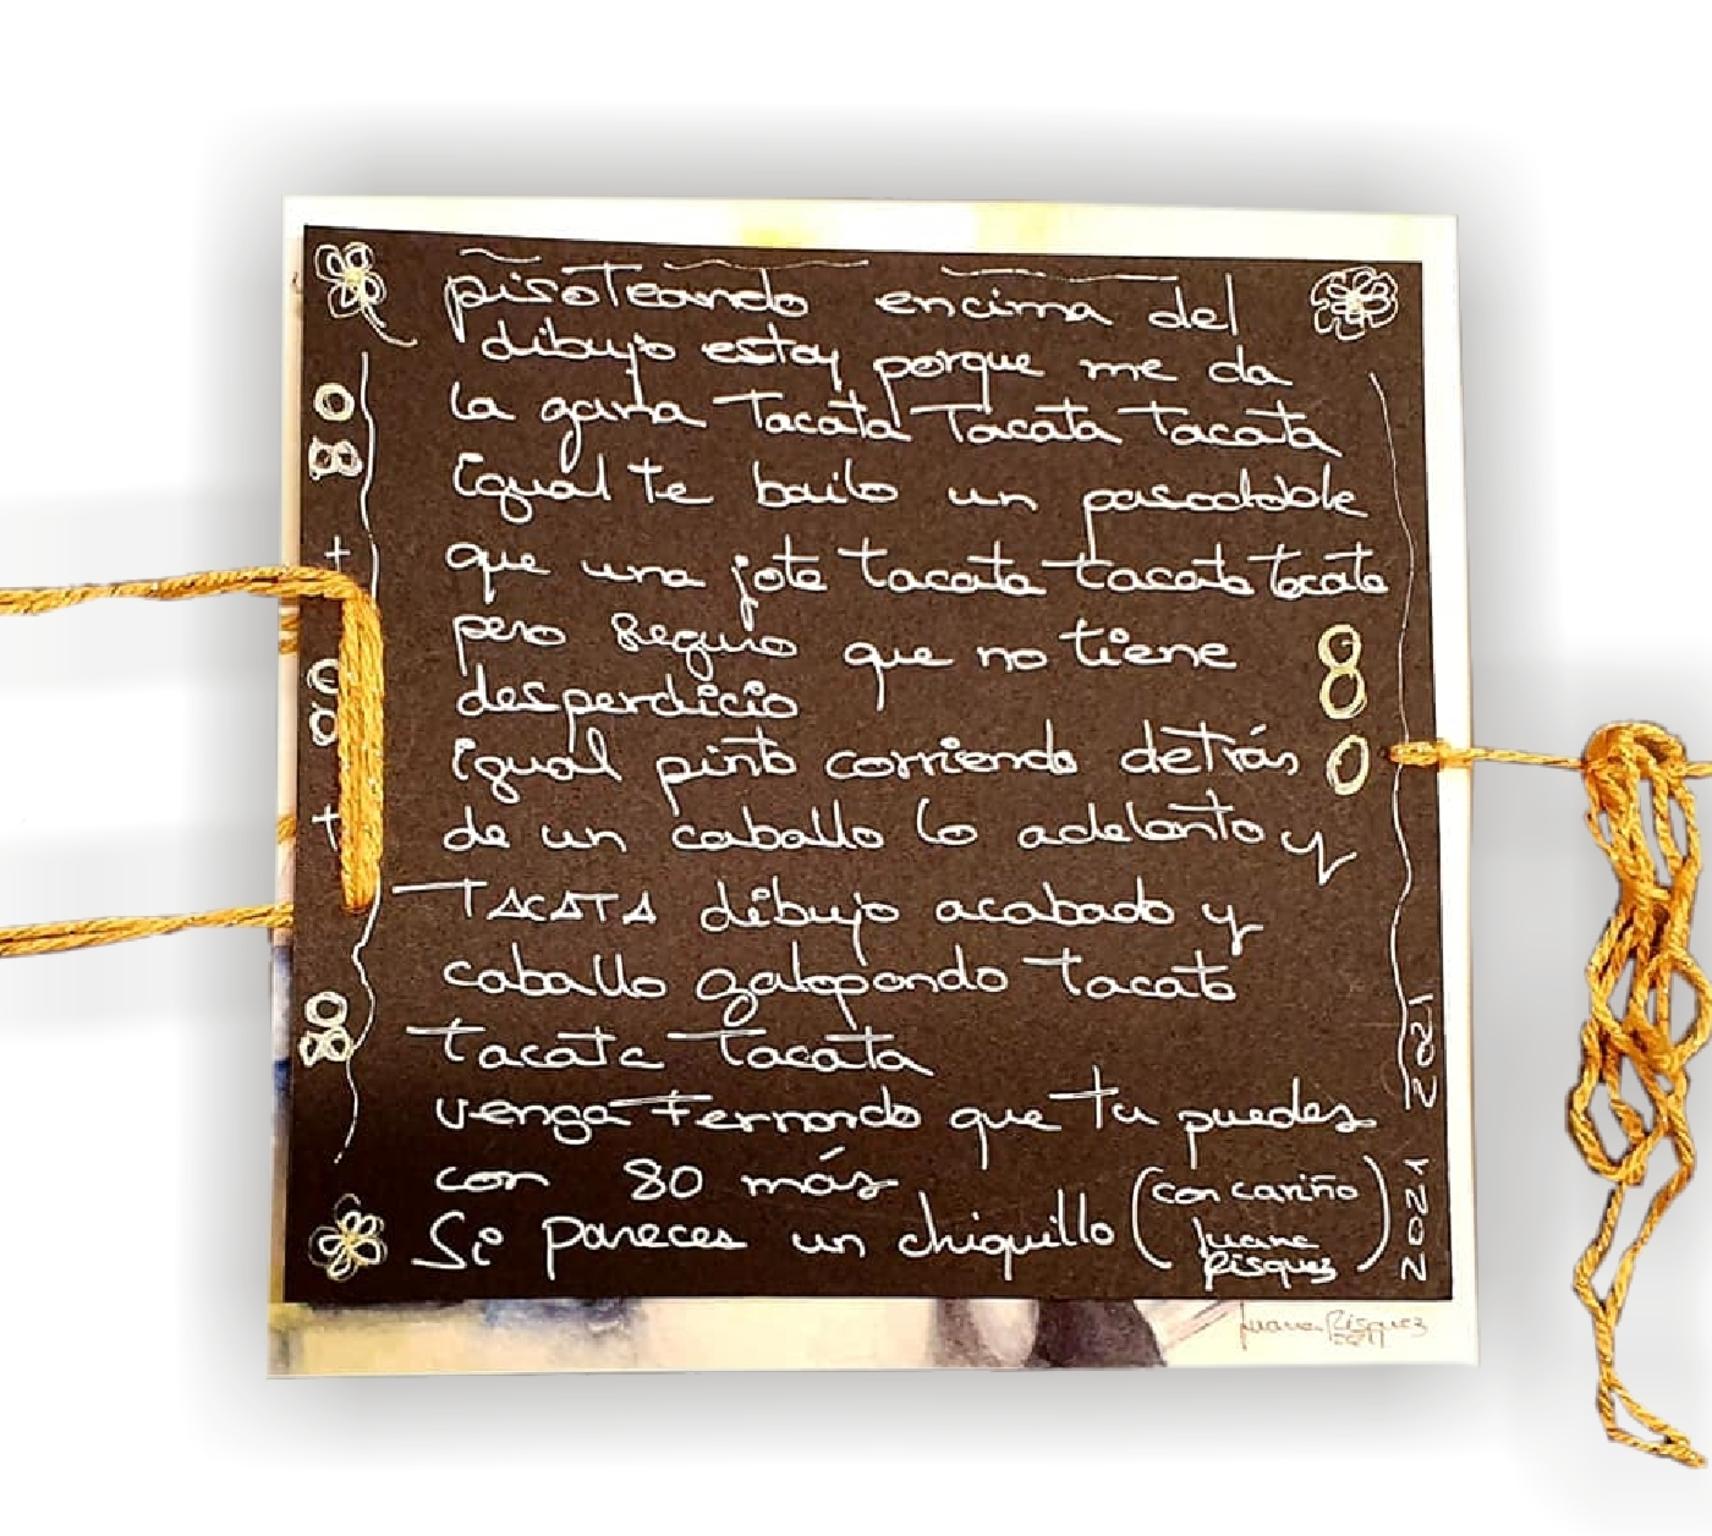 pisoteando encima del
dibujo estoy porque me da
la gana Tacata Tacata Tacata
igual te bailo un pasodoble
que una jota tacata tacata tacata
pero seguro que no tiene
desperdicio
igual pinto corriendo detrás
de un caballo lo adelanto y
TACATA dibujo acabado y
caballo galopando tacata
tacata tacata
venga Fernando que tu puedes
con 80 más
Si pareces un chiquillo (con cariño
Juana
Risquez)
80
2021
2021
Juana Risquez